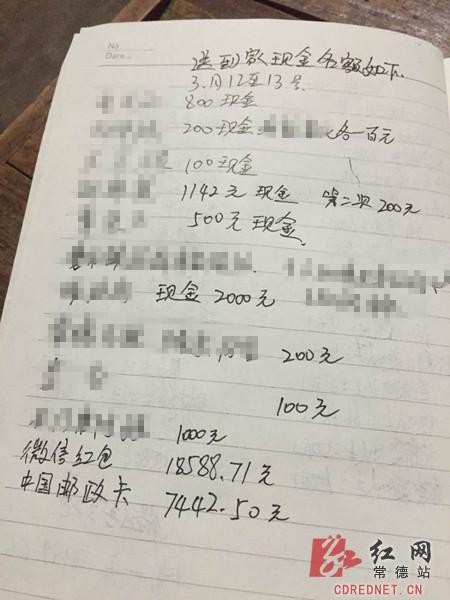 No.
Date
送到家现金名额如下.
3月12至13号.
800现金
200现金 各一百元
100现金
1142元 现金 第二次200元
500元 现金
现金2000元
200元
100元
1000元
微信红包 18588.71元
中国邮政卡 7442.50元
红网
常德站
CDREDNET.CN